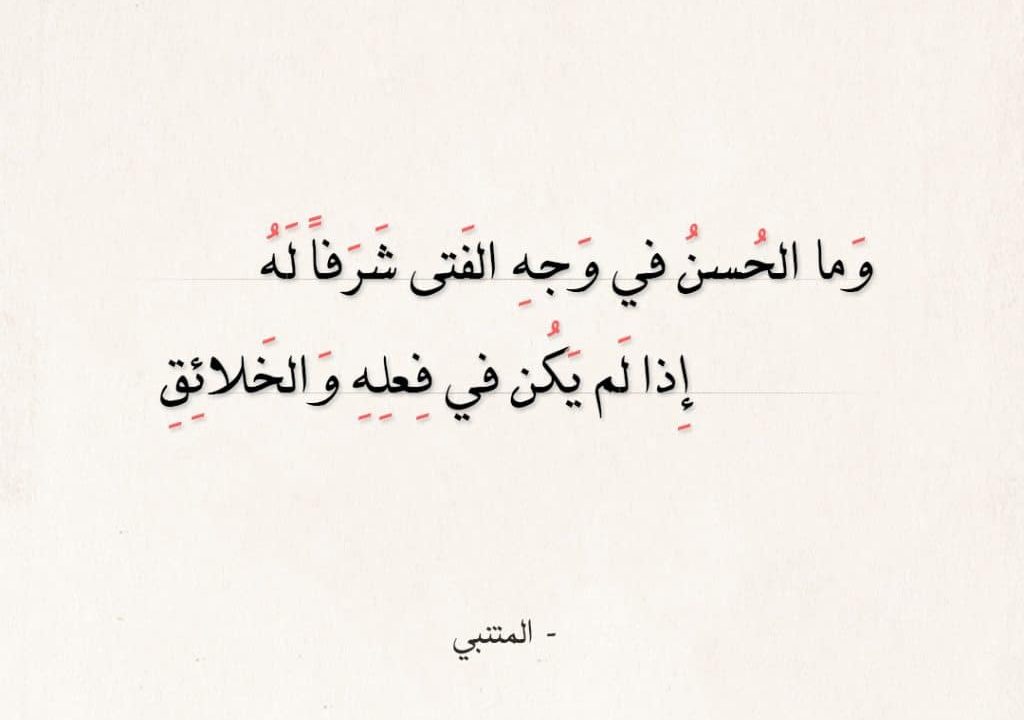 وَما الحُسنُ في وَجهِ الفَتى شَرَفاً لَهُ
إِذا لَم يَكُن في فِعلِهِ وَالخَلائِقِ
- المتنبي